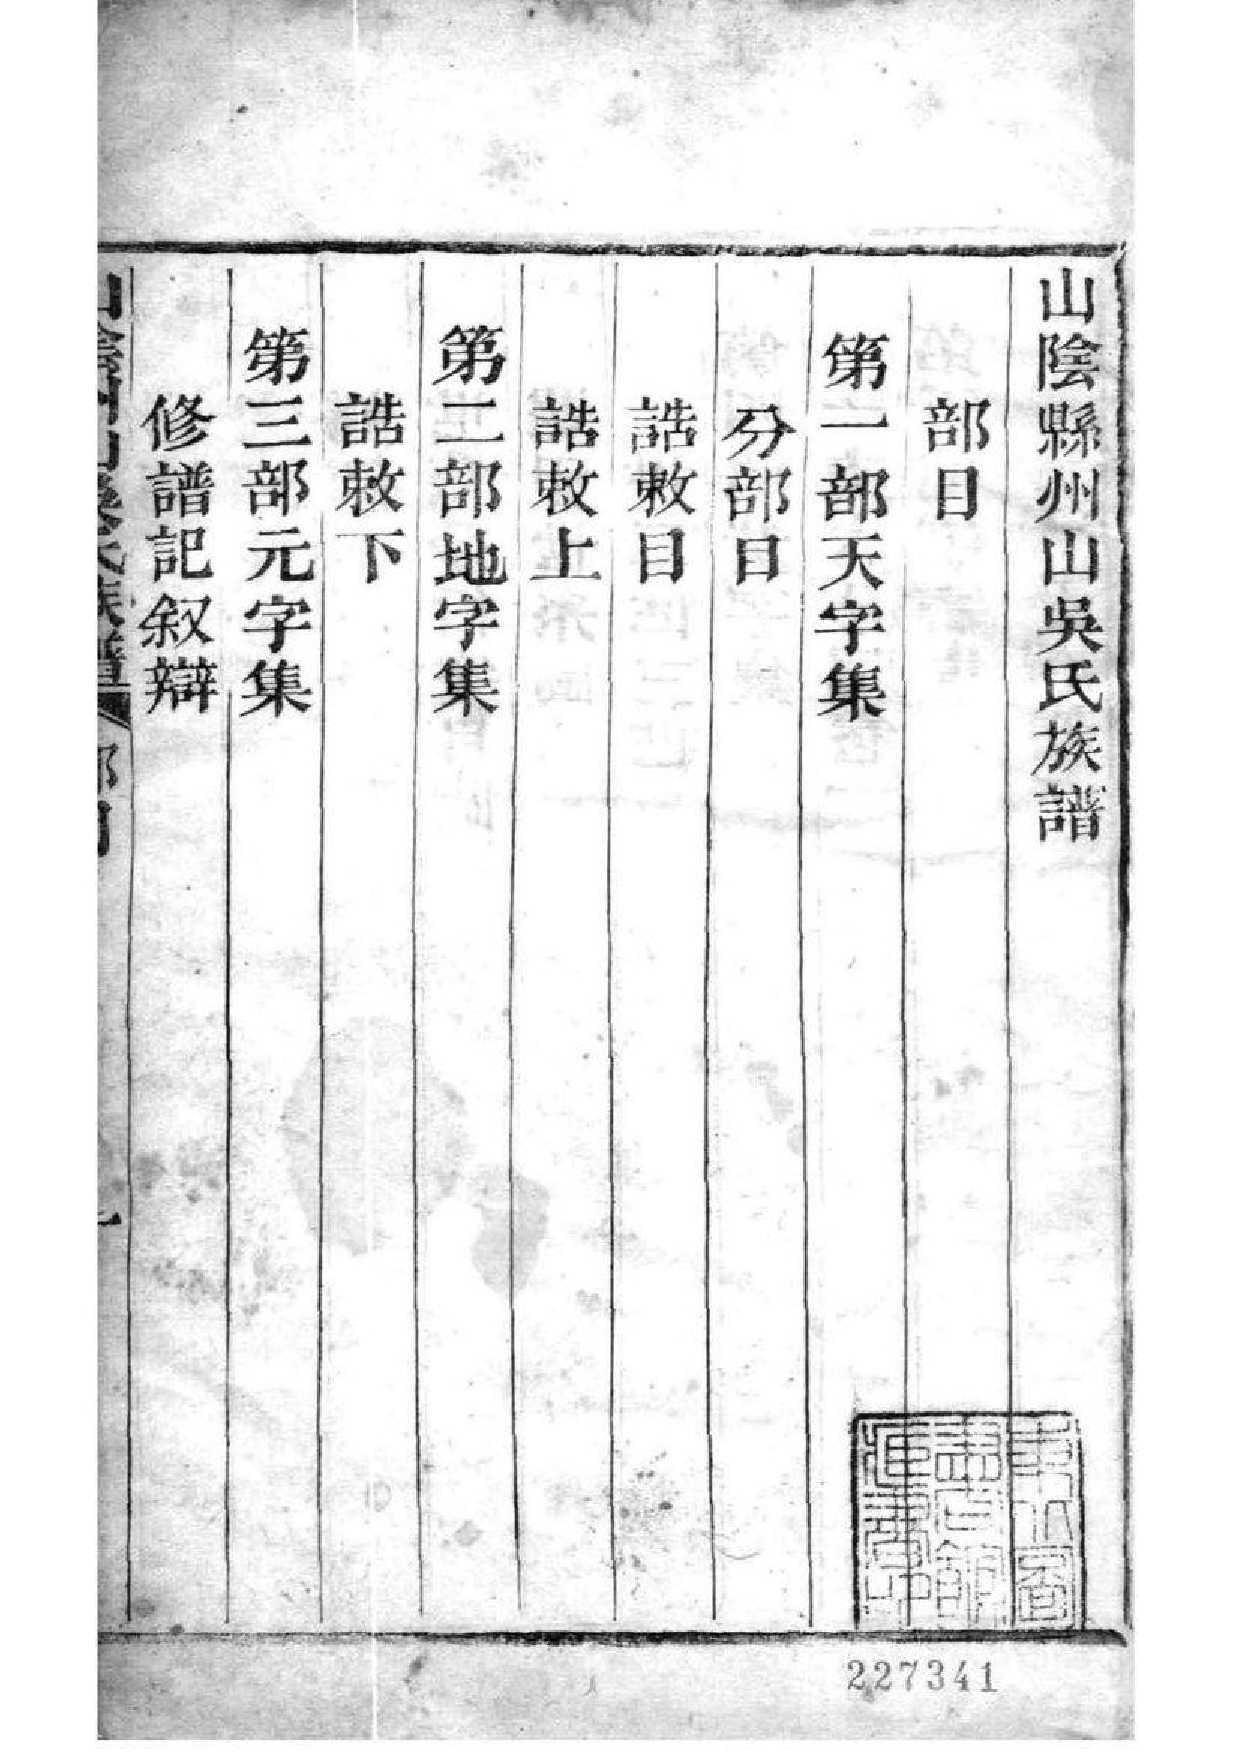 山陰縣州山吳氏族譜
部目
第一部天字集
分部目
誥敕目
誥敕上
第二部地字集
誥敕下
第三部元字集
修譜記叙辯
山陰州山吳氏族譜 部目
東北圖書館藏書印
227341